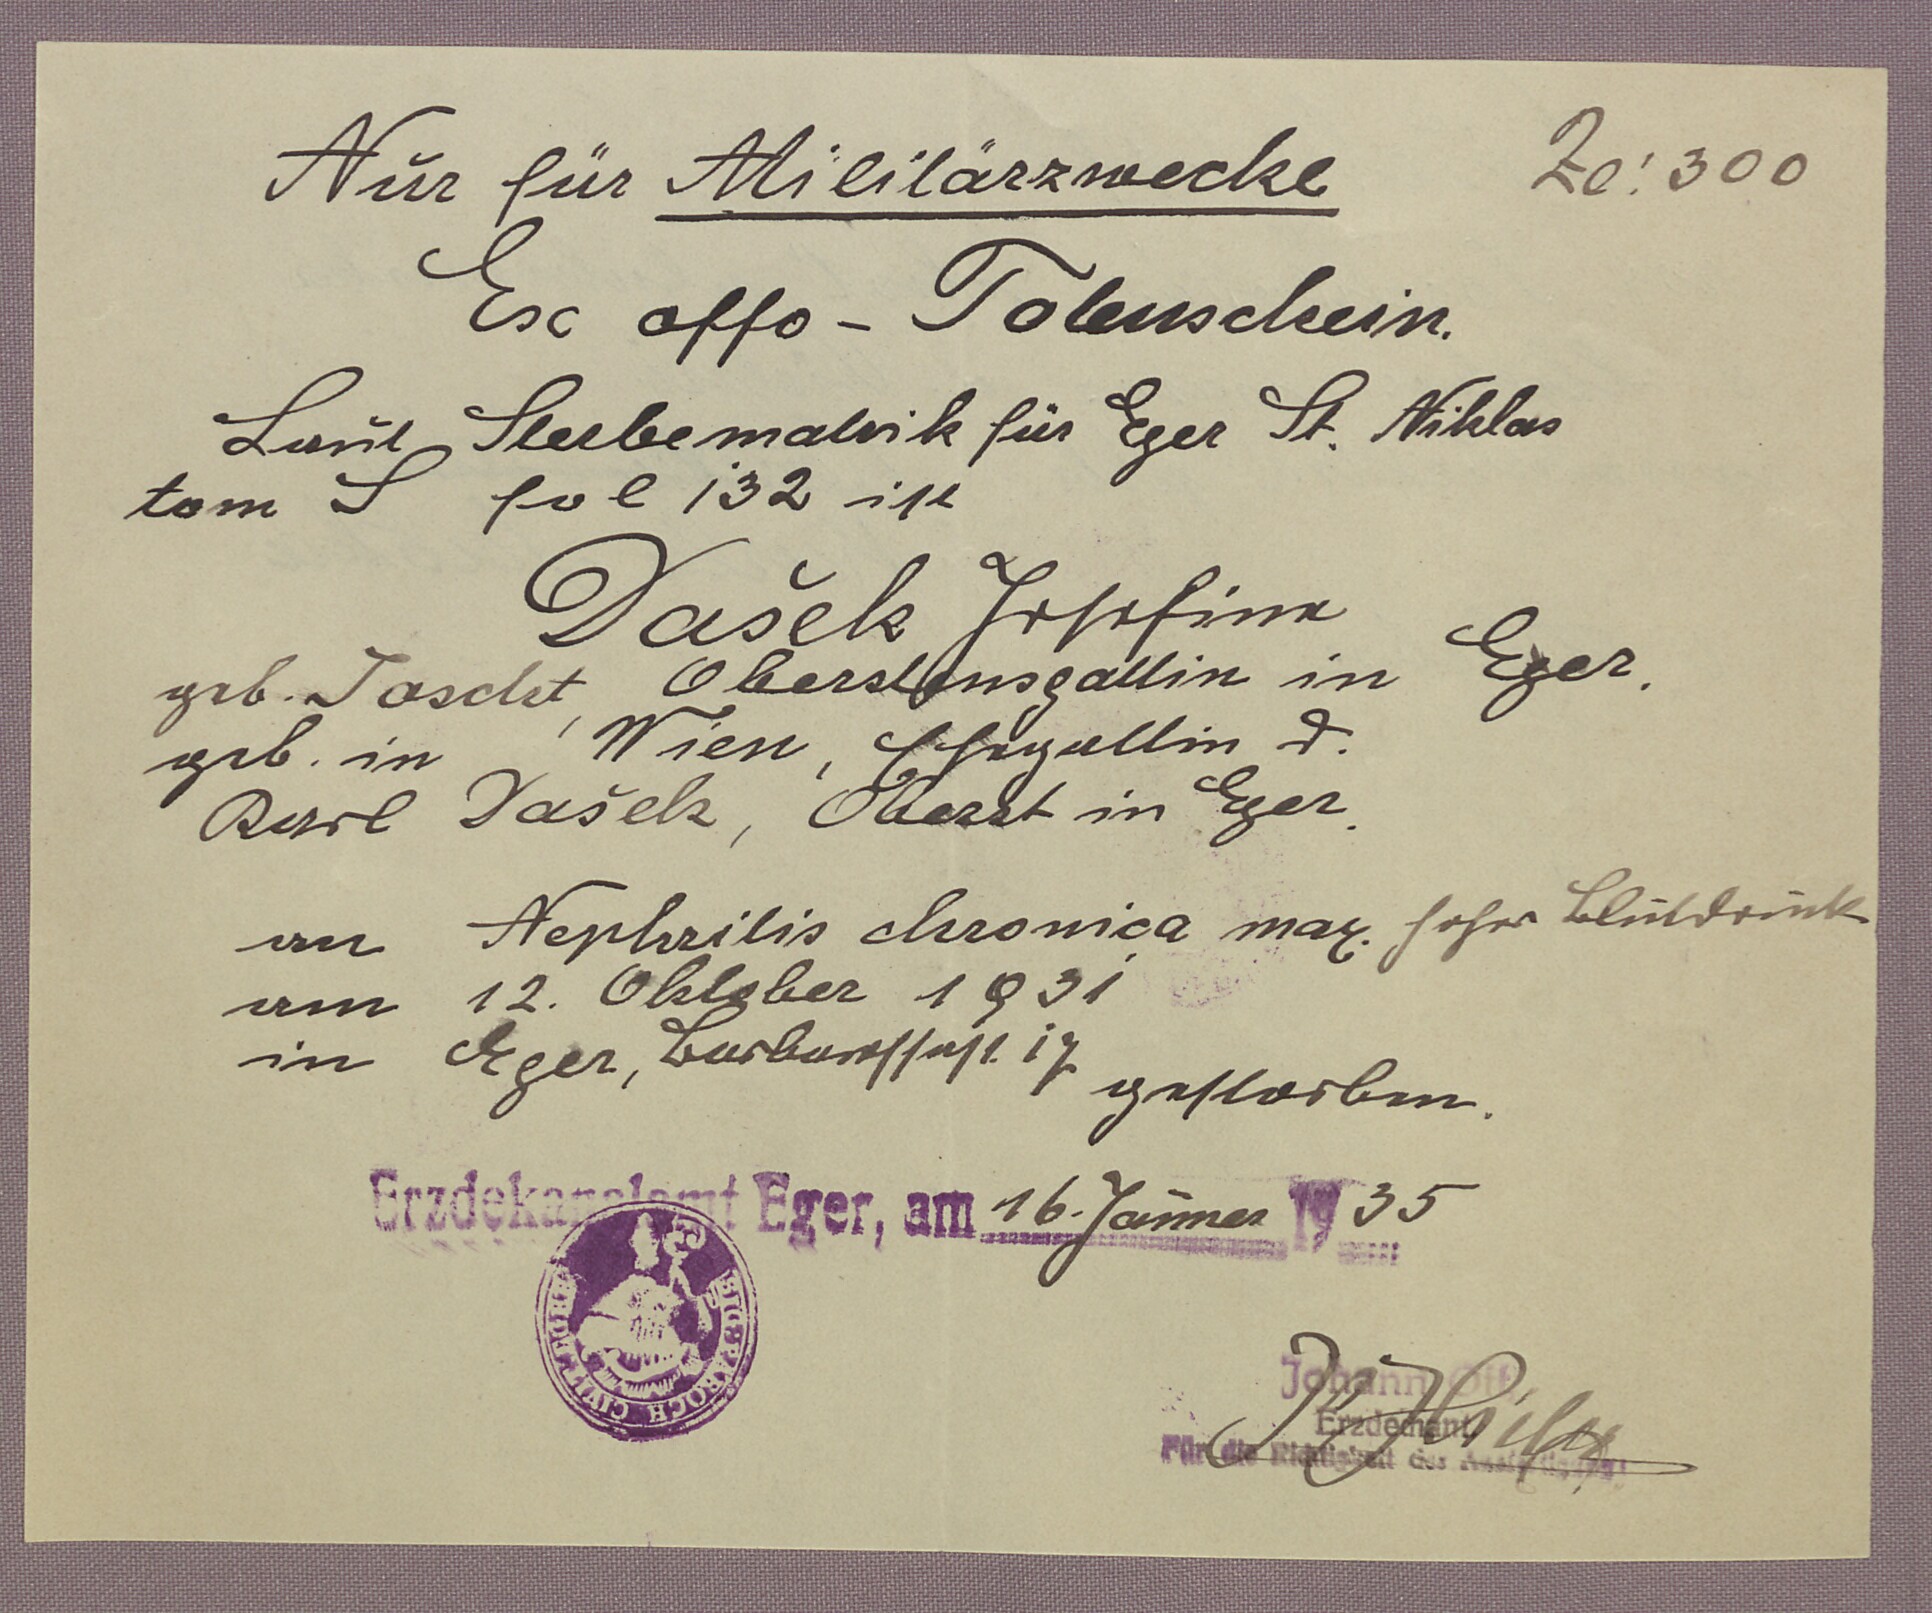 Nur für Militärzwecke
Zl: 300
Ex offo - Totenschein.
Laut Sterbematrik für Eger St. Niklas
tom S fol 132 ist
Dašek Josefine
geb. Taschet, Oberstensgattin in Eger.
geb. in Wien, Ehegattin d.
Karl Dašek, Oberst in Eger.
an Nephritis chronica max. hoher Blutdruck
am 12. Oktober 1931
in Eger, 17 gestorben.
Erzdekanalamt Eger, am 16. Jänner 1935
Johann
Erzdechant
Für die Richtigkeit der Ausfertigung: